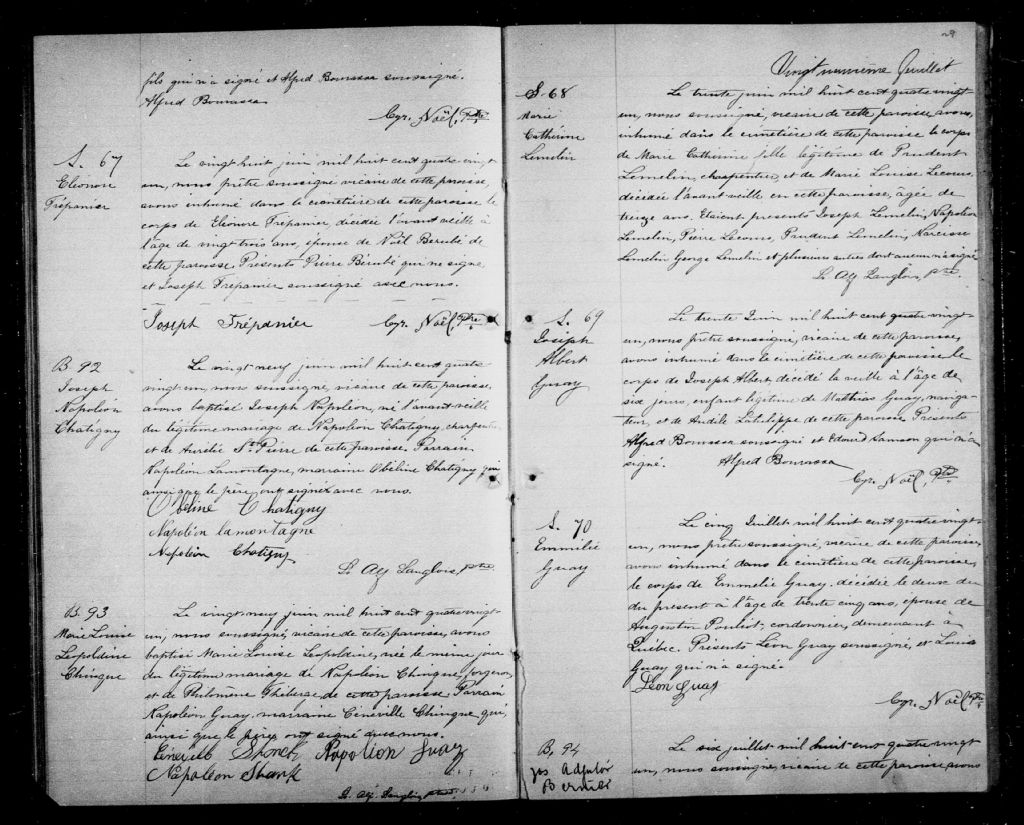 fils qui n'a signé et Alfred Bourassa soussigné.
Alfred Bourassa
Cyr. Noël, Ptre
S. 67
Eléonore
Trépanier
Le vingt huit juin mil huit cent quatre vingt
un, nous prêtre soussigné vicaire de cette paroisse,
avons inhumé dans le cimetière de cette paroisse le
corps de Eléonore Trépanier, décédée l'avant veille à
l'âge de vingt trois ans, épouse de Noël Bérubé de
cette paroisse. Présents Pierre Bérubé qui ne signe,
et Joseph Trépanier soussigné avec nous.
Joseph Trépanier Cyr. Noël Ptre
B. 92
Joseph
Napoléon
Chatigny
Le vingt neuf juin mil huit cent quatre
vingt un, nous soussigné, vicaire de cette paroisse,
avons baptisé Joseph Napoléon, né l'avant veille
du légitime mariage de Napoléon Chatigny, charpentier
et de Aurélie St Pierre de cette paroisse. Parrain
Napoléon Lamontagne, marraine Obéline Chatigny qui
ainsi que le père, ont signé avec nous.
Obéline Chatigny
Napoléon lamontagne
Napoléon Chatigny
Ls. Alf Langlois, ptre
B. 93
Marie Louise
Leopoldine
Chinque
Le vingt neuf juin mil huit cent quatre vingt
un, nous soussigné, vicaire de cette paroisse, avons
baptisé Marie Louise Leopoldine, née le même jour
du légitime mariage de Napoléon Chinque, forgeron,
et de Philomène de cette paroisse. Parrain
Napoléon Guay, marraine Cénéville Chinque qui,
ainsi que le père, ont signé avec nous.
Napoléon Guay
Napoléon
Ls. Alf. Langlois, ptre
29
Vingt neuvième feuillet
S. 68
Marie
Catherine
Lemelin
Le trente juin mil huit cent quatre vingt
un, nous soussigné, vicaire de cette paroisse, avons
inhumé dans le cimetière de cette paroisse le corps
de Marie Catherine fille légitime de Prudent
Lemelin, charpentier, et de Marie Louise Lecours,
décédée l'avant veille en cette paroisse, âgée de
treize ans. Etaient présents Joseph Lemelin, Napoléon
Lemelin, Pierre Lecours, Prudent Lemelin, Narcisse
Lemelin George Lemelin et plusieurs autres dont aucun n'a signé
Ls. Alf Langlois, ptre.
S. 69
Joseph
Albert
Guay
Le trente Juin mil huit cent quatre vingt-
un, nous prêtre soussigné, vicaire de cette paroisse,
avons inhumé dans le cimetière de cette paroisse le
corps de Joseph Albert, décédé la veille à l'âge de
six jours, enfant légitime de Mathias Guay, naviga-
teur, et de Adèle de cette paroisse. Présents
Alfred Bourassa soussigné et Edouard Samson qui n'a
signé. Alfred Bourassa
Cyr. Noël, Ptre
S. 70
Emmélie
Guay
Le cinq Juillet mil huit cent quatre vingt-
un, nous prêtre soussigné, vicaire de cette paroisse,
avons inhumé dans le cimetière de cette paroisse,
le corps de Emmélie Guay, décédée le deux du
du présent à l'âge de trente cinq ans, épouse de
Augustin Pouliot, cordonnier, demeurant à
Québec. Présents Léon Guay soussigné, et Louis
Guay qui n'a signé.
Léon Guay
Cyr. Noël Ptre
B. 94
Jos Adjutor
Bernier
Le six juillet mil huit cent quatre vingt
un, nous soussigné, vicaire de cette paroisse avons